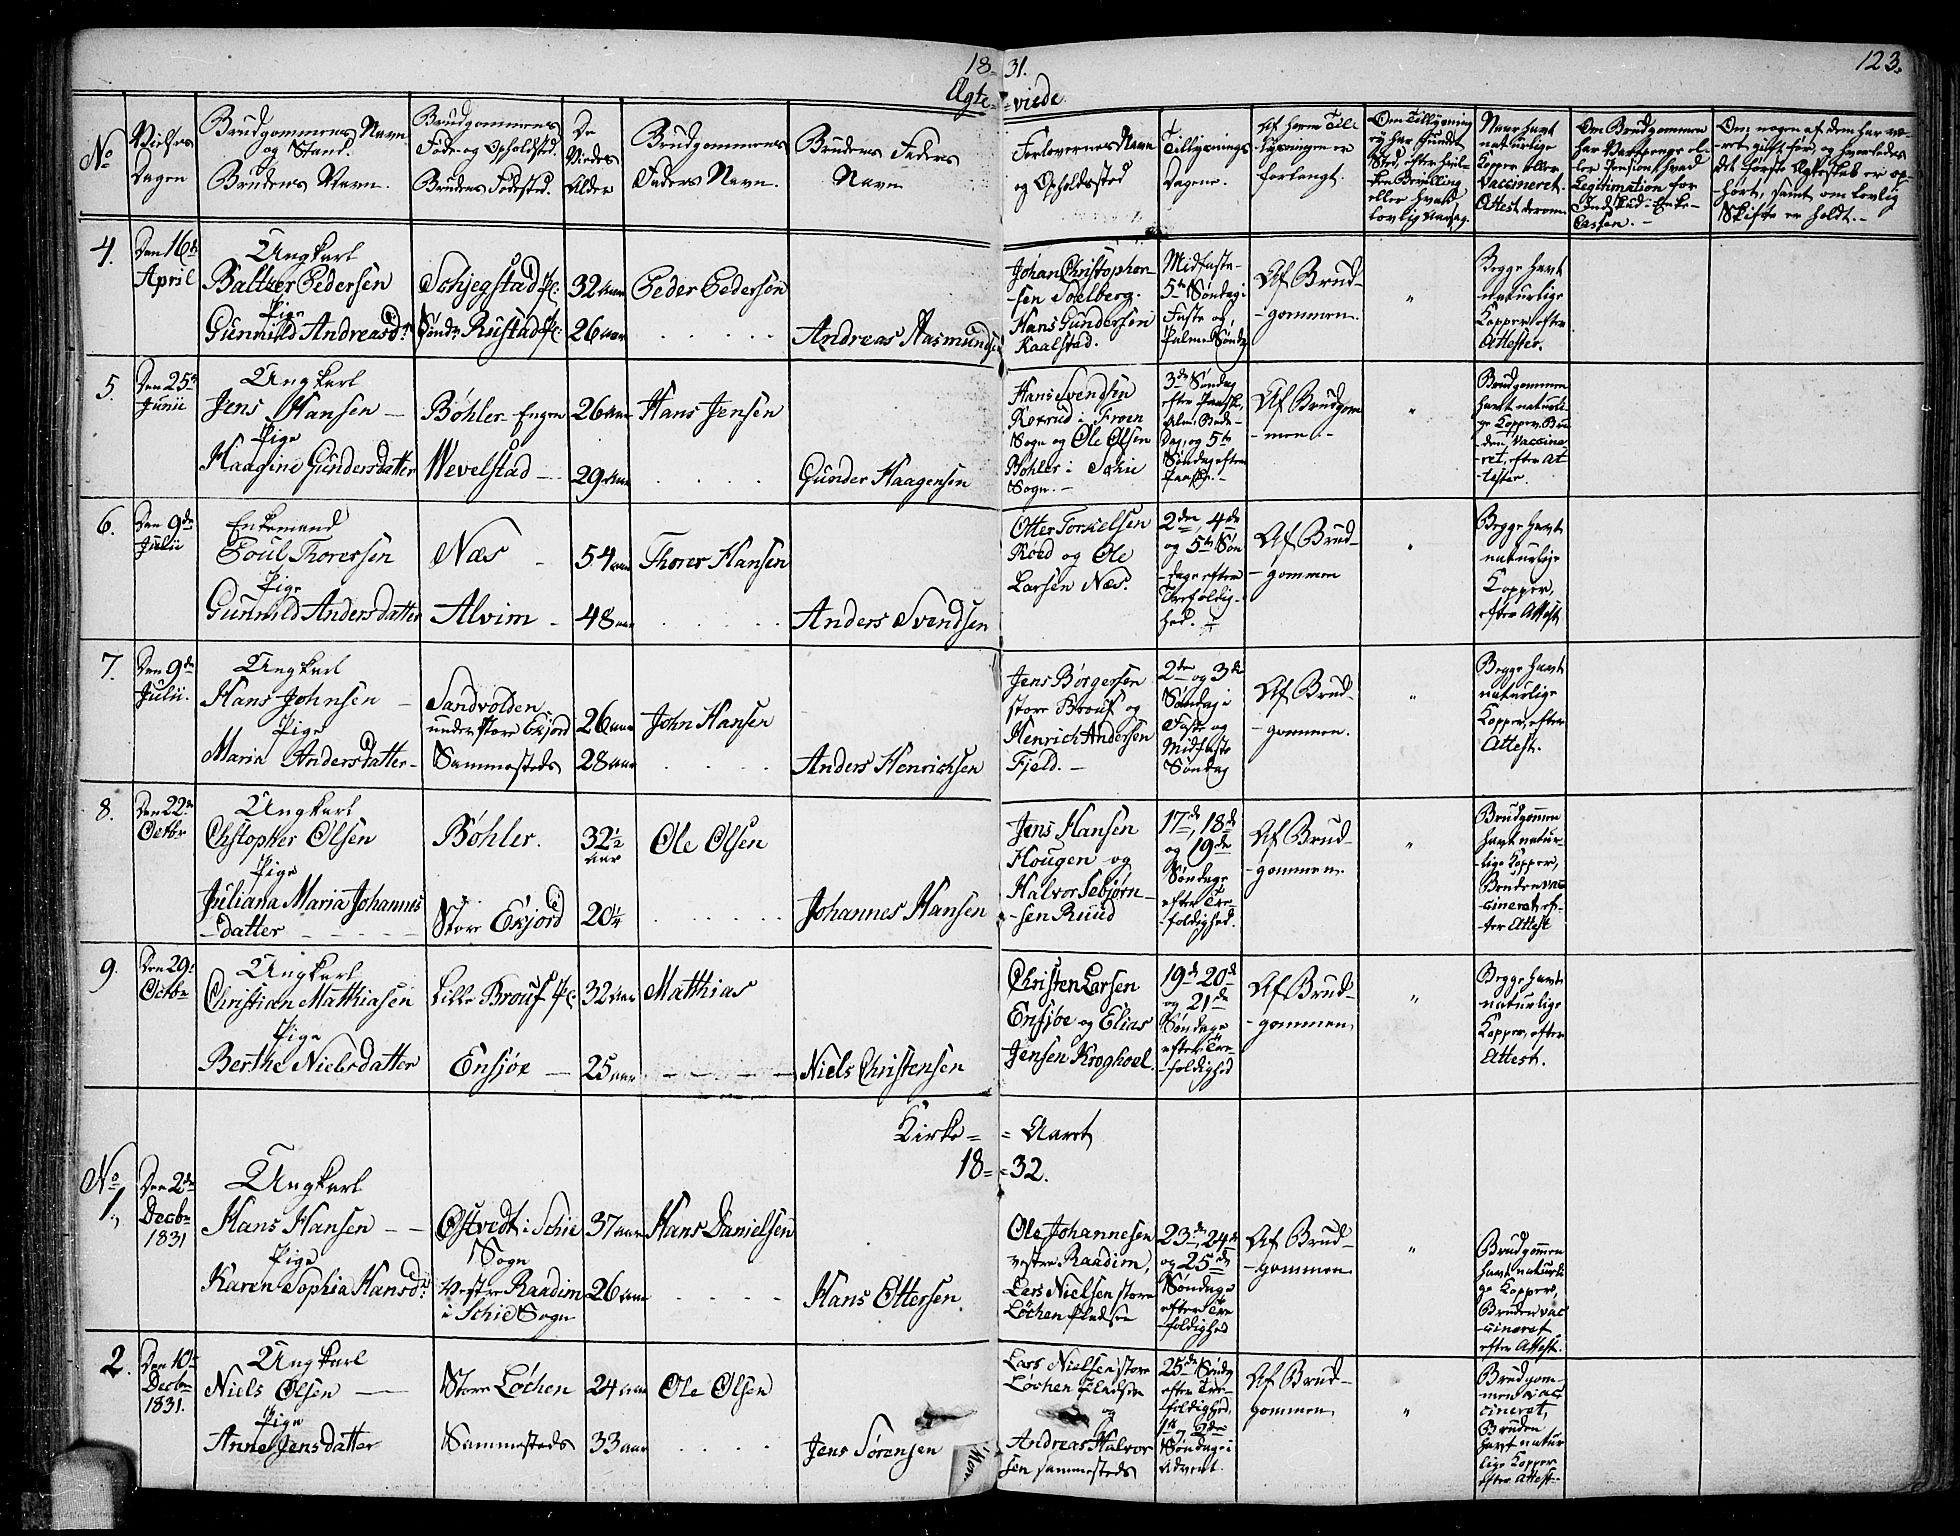 18
31.
123.
Ægte-
-viede.
No
Vielses
Dagen
Brudgommens Navn
og Stand.
Brudens Navn.
Brudgommens
Føde- og Opholdsted.
Brudens Fødested.
De
Viedes
Alder
Brudgommens
Faders Navn.
Brudens Faders
Navn
Forlovernes Navn
og Opholdssted
Tillysnings
Dagene.
Af hvem Til-
lysningen er
forlangt.
Om Tillysning
ey har fundet
Sted, efter hvil-
ken Bevilling
eller hvad
lovlig Aarsag.
Naar havt
naturlige
Kopper eller
Vaccineret.
Attest derom
Om Brudgommen
har Vartpenge el-
ler Pension hvad
Legitimation for
Indskud i Enke-
Cassen.
Om nogen af dem har væ-
ret gift før, og hvorledes
det første Ægteskab er op-
hørt, samt om lovlig
Skifte er holdt.
4.
Den 16de
April
Ungkarl
Baltzer Pedersen
Pige
Gunnild Andreasdr
Schjegstad Pl:
Søndr Rustad Pl:
32 aar
26 aar
Peder Pedersen
Andreas Rasmundsen
Johan Christophen-
-sen Solberg.
Hans Gundersen
Kaalstad.
Midfaste-
5te Søndag i
Faste og
Palme Søndag
Af Brud-
-gommen.
Begge havt
naturlige
Kopper, efter
Attester.
5.
Den 25te
Junii
Ungkarl
Jens Hansen
Pige
Haagine Gundersdatter
Bøhler-Engen
Wevelstad
26 aar
29 aar
Hans Jensen
Gunder Haagensen
Hans Svendsen
Korsrud i Froen
Sogn og Ole Olsen
Bøhler i Schie
Sogn.
3de Søndag
efter Paaske,
Alm: Bede-
Dag, og 5te
Søndag efter
Paaske.
Af Brudgom
-men
Brudgommen
havt naturli-
ge Kopper, Bru-
den vaccine
-ret, efter At
-tester.
6.
Den 9de
Julii
Enkemand
Poul Thoresen
Pige
Gunnild Andersdatter
Næs
Alvim
54 aar
48 aar
Thorer Hansen
Anders Svendsen
Otter Torkelsen
Roed og Ole
Larsen Næs.
2den, 4de
og 5te Søn
-dage efter
Trefoldig-
hed.
Af Brud-
-gommen
Begge havt
naturlige
Kopper,
efter Attest
7.
Den 9de
Julii.
Ungkarl
Hans Johnsen
Pige
Maria Andersdatter
Sandvolden
under store Ekjord
Sammesteds
26 aar
28 aar
John Hansen
Anders Henrichsen
Jens Børgersen
store Brouf og
Henrich Andersen
Fjeld.
2den og 3de
Søndag i
Faste og
Midfaste
Søndag
Af Brud-
-gommen.
Begge havt
naturlige
Kopper, efter
Attest.
8.
Den 22de
Octbr
Ungkarl
Chstopher Olsen
Pige
Juliana Maria Johannis
-datter
Bøhler.
Store Ekjord
32½
aar
20¼
Ole Olsen
Johannes Hansen
Jens Hansen
Hougen og
Halvor Sebjørn-
-sen Ruud
17de, 18de
og 19de
Søndage
efter Tre-
-foldighed.
Af Brud-
-gommen.
Brudgommen
havt natur-
-lige Kopper,
Bruden vac
-cineret, ef-
-ter Attest
9.
Den 29de
Octbr
Ungkarl
Christian Matthiasen
Pige
Berthe Nielsdatter
Lille Brouf Pl:
Ensjøe
32 aar
25 aar
Matthias
Niels Christensen
Christen Larsen
Ensjøe og Elias
Jensen Kroghoel.
19de 20de
og 21de
Søndage
efter Tre-
-foldighed
Af Brud-
-gommen,
Begge havt
naturlige
Kopper, efter
Attest.
Kirke-
-Aaret
18-
-32.
No
1.
Den 2den
Decbr
1831
Ungkarl
Hans Hansen
Pige
Karen Sophia Hansdr
Østvedt i Schie
Sogn
Vestre Raadim
i Schie Sogn
37 aar
26 aar
Hans Danielsen
Hans Ottersen.
Ole Johannesen
vestre Raadim,
Lars Nielsen store
Løchen Pladsen
23de, 24de
og 25de
Søndage
efter Tre
-foldighed
Af Brud-
-gommen.
Brudgommen
havt naturli
ge Kopper,
Bruden vac
-cineret,
efter Attest.
2.
Den 10de
Decbr
1831.
Ungkarl
Niels Olsen
Pige
Anne Jensdatter
Store Løchen
Sammesteds
24 aar
33 aar
Ole Olsen
Jens Sørensen
Lars Nielsen store
Løchen Pladsen
og
Andreas Halvor
sen sammesteds
25de Søndag
efter Tre-
foldighed,
1te, 2den
Søndag i
Advent.
Af Brud-
gommen.
Brudgom-
men vac
cineret,
Bruden
havt natur
lige Kopper
efter Attest.